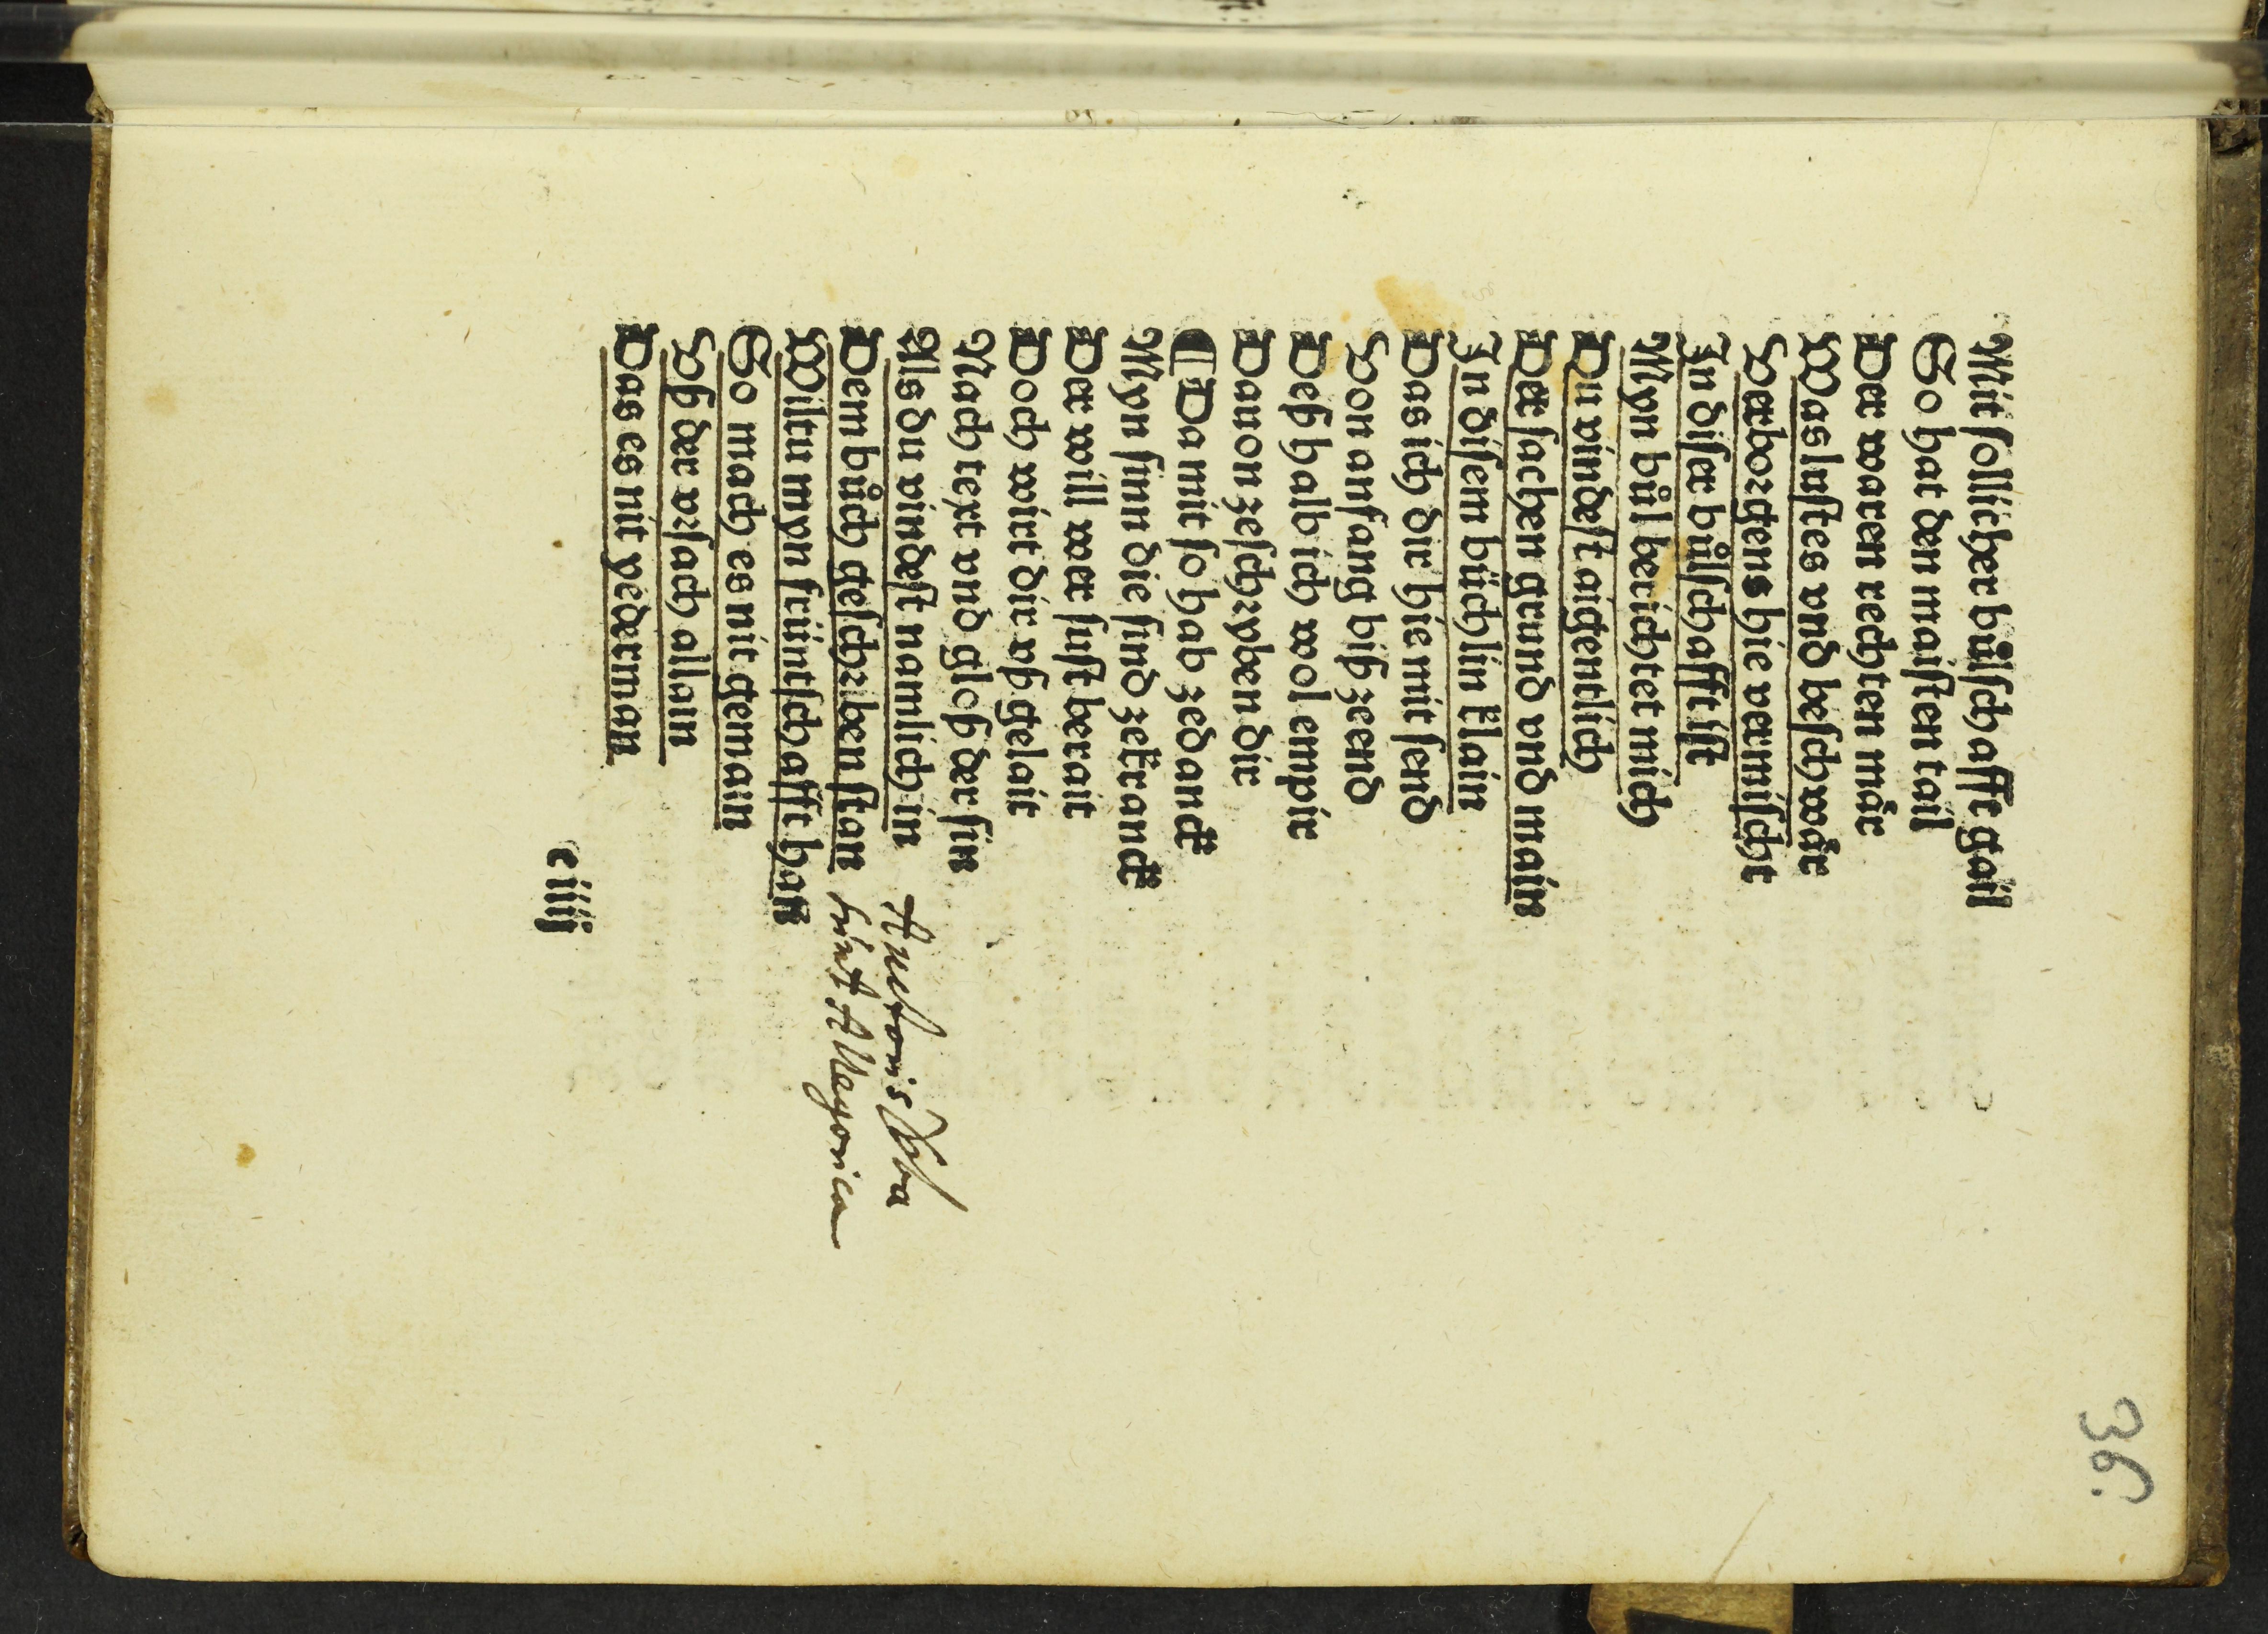 36.
Mit ſollicher bůlſchafft gail
So hat den maiſten tail
Der waren rechten mår
Was luſtes vnd beſchwår
Verborgens hie vermiſcht
In diſer bůlſchafft iſt
Myn bůl berichtet mich
Du vindeſt aigentlich
Der ſachen grund vnd main
In diſem büchlin klain
Das ich dir hie mit ſend
Von anfang biß zeend
Deßhalb ich wol empir
Dauon zeſchryben dir
⸿ Da mit ſo hab zedanck
Myn ſinn die ſind zekranck
Der will wer ſuſt berait
Doch wirt dir vß gelait
Nach text vnd gloß der ſin
Als du vindeſt namlich in
Dem bůch geſchrben ſtan
Wiltu myn früntſchafft han
So mach es nit gemain
Vß der vrſach allain
Das es nit yederman
Auctoris Vba
ſint Allegorica
e iiij